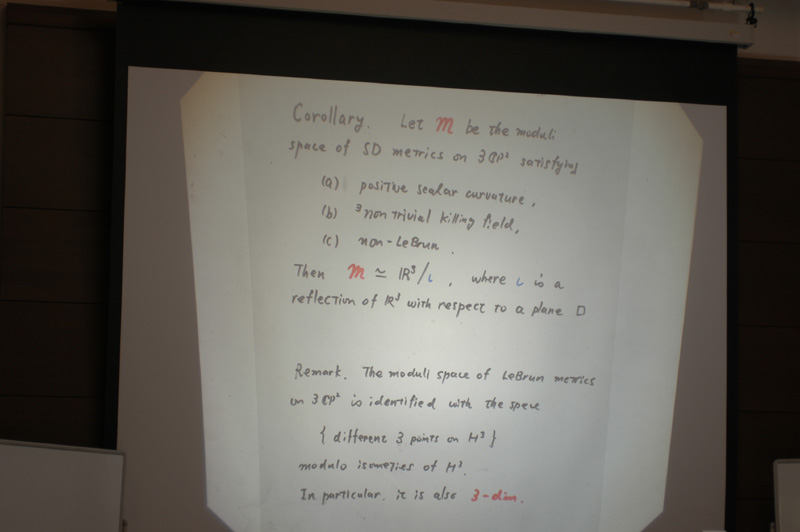 Corollary. Let M be the moduli
space of SD metrics on 3ℂP² satisfying
(a) positive scalar curvature,
(b) ∃non trivial killing field,
(c) non-LeBrun.
Then M ≃ ℝ³/ι, where ι is a
reflection of ℝ³ with respect to a plane □
Remark. The moduli space of LeBrun metrics
on 3ℂP² is identified with the space
{ different 3 points on H³ }
modulo isometries of H³.
In particular, it is also 3-dim.